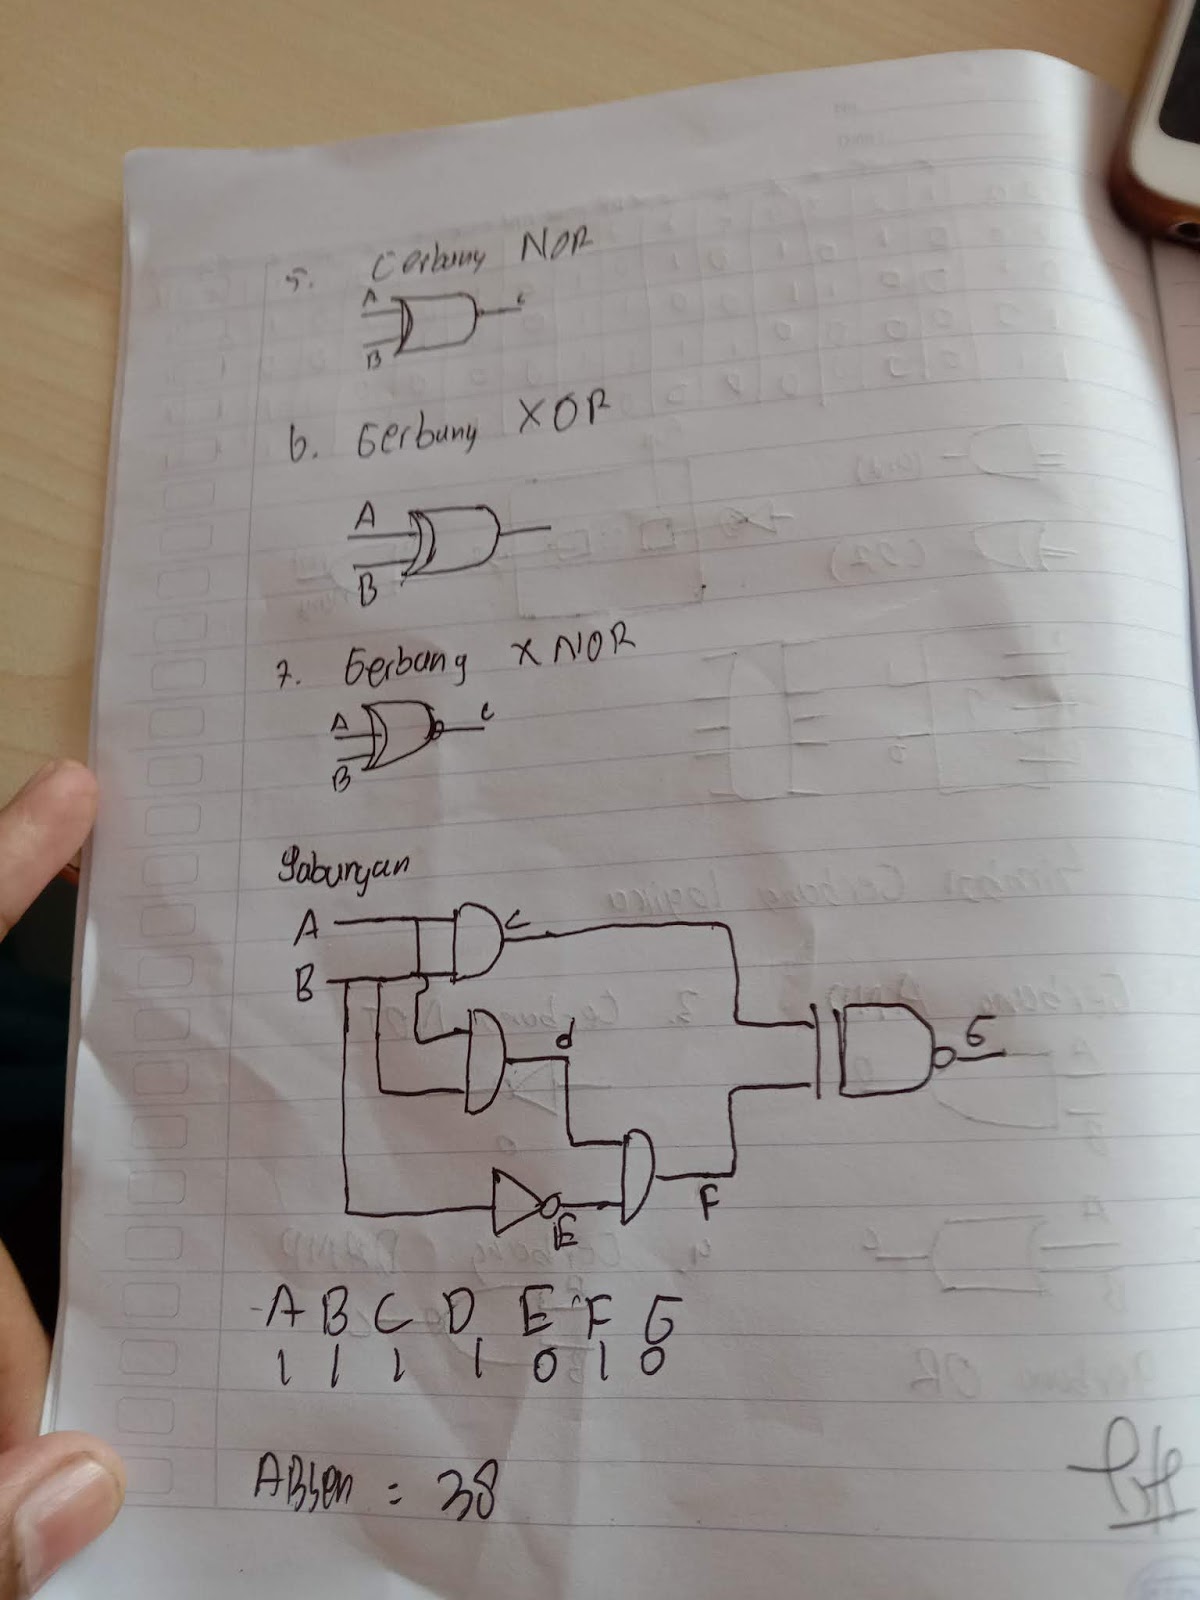 5. Gerbang NOR
A
C
B
6. Gerbang XOR
A
B
7. Gerbang XNOR
A
C
B
Gabungan
A
C
B
d
G
E
F
A B C D E F G
1 1 1 1 0 1 0
ABsen = 38